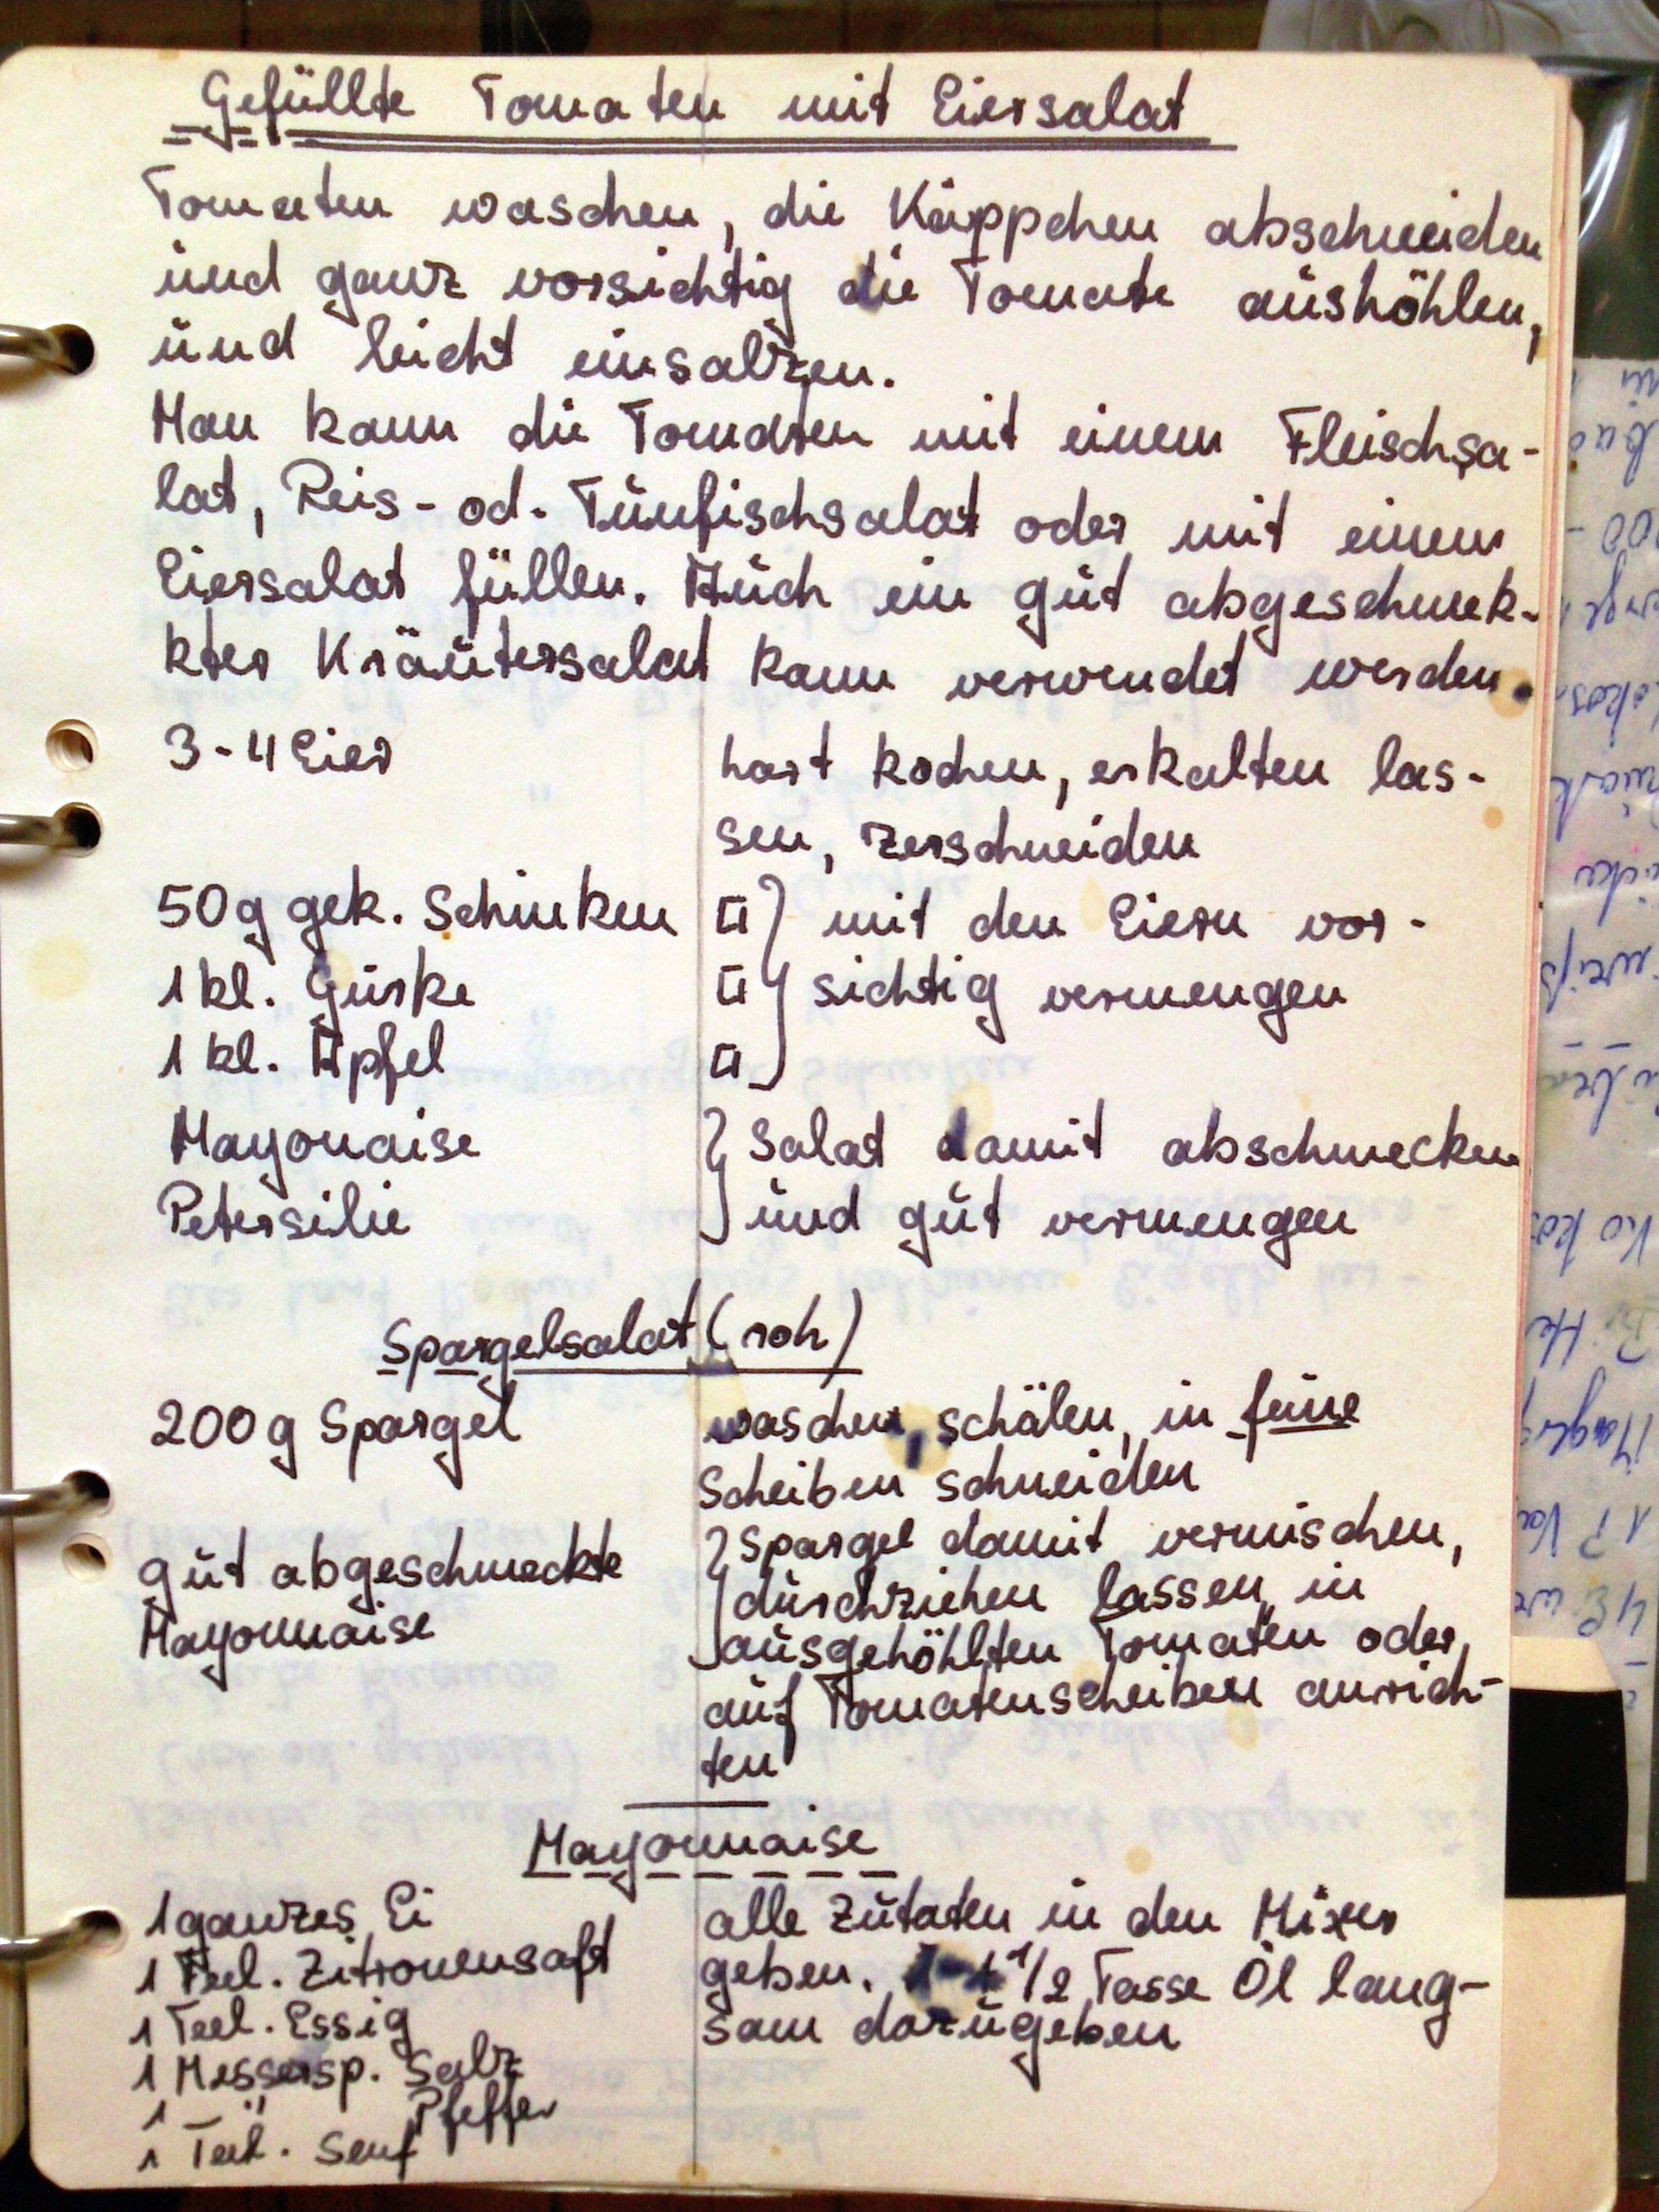 Gefüllte Tomaten mit Eiersalat
Tomaten waschen, die Käppchen abschneiden
und ganz vorsichtig die Tomate aushöhlen,
und leicht einsalzen.
Man kann die Tomaten mit einem Fleischsa-
lat, Reis- od. Tunfischsalat oder mit einem
Eiersalat füllen. Auch ein gut abgeschmek-
kter Kräutersalat kann verwendet werden.
3-4 Eier hart kochen, erkalten las-
sen, zerschneiden
50g gek. Schinken □ } mit den Eiern vor-
1 kl. Gurke □ } sichtig vermengen
1 kl. Apfel □ }
Mayonaise } Salat damit abschmecken
Petersilie } und gut vermengen
Spargelsalat (roh)
200g Spargel waschen, schälen, in feine
Scheiben schneiden
gut abgeschmeckte } Spargel damit vermischen,
Mayonnaise } durchziehen lassen, in
ausgehöhlten Tomaten oder
auf Tomatenscheiben anrich-
ten
Mayonnaise
1 ganzes Ei alle Zutaten in den Mixer
1 Teel. Zitronensaft geben. 1/2 Tasse Öl lang-
1 Teel. Essig sam dazugeben
1 Messersp. Salz
1 - " - Pfeffer
1 Teel. Senf